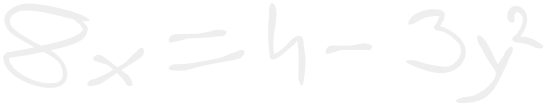 8x = h - 3y²